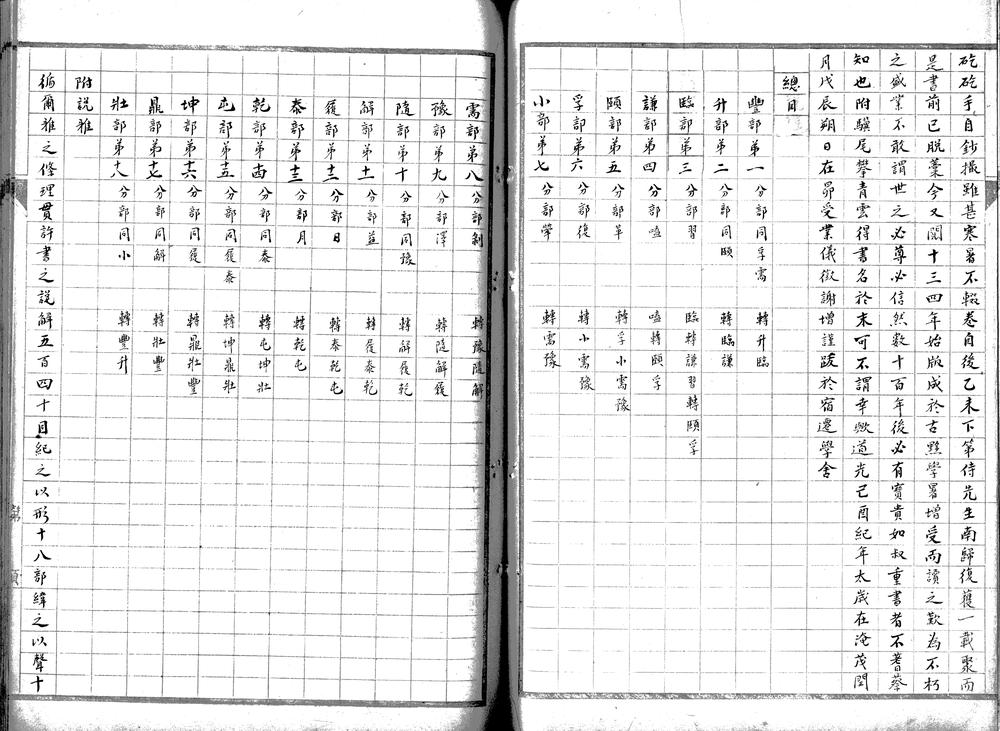 矻矻手自鈔撮雖甚寒暑不輟卷自後乙未下第侍先生南歸復獲一載聚而
是書前已脫藁今又閱十三四年始版成於古黟學署增受而讀之歎為不朽
之盛業不敢謂世之必尊必信然數十百年後必有寶貴如叔重書者不蓍蔡
知也附驥尾攀青雲得書名於末可不謂幸歟道光己酉紀年太歲在淹茂閏
月戊辰朔日在昴受業儀徵謝增謹跋於宿遷學舍
總目
豐部第一 分部同孚需 轉升臨
升部第二 分部同頤 轉臨謙
臨部第三 分部習 臨轉謙習轉頤孚
謙部第四 分部嗑 嗑轉頤孚
頤部第五 分部革 轉孚小需豫
孚部第六 分部復 轉小需豫
小部第七 分部犖 轉需豫
需部第八 分部剝 轉豫隨解
豫部第九 分部澤 轉隨解履
隨部第十 分部同豫 轉解履乾
解部第十一 分部益 轉履泰乾
履部第十二 分部日 轉泰乾屯
泰部第十三 分部月 轉乾屯
乾部第十四 分部同泰 轉屯坤壯
屯部第十五 分部同履泰 轉坤鼎壯
坤部第十六 分部同履 轉鼎壯豐
鼎部第十七 分部同解 轉壯豐
壯部第十八 分部同小 轉豐升
附說雅
循爾雅之條理貫許書之說解五百四十目紀之以形十八部緯之以聲十